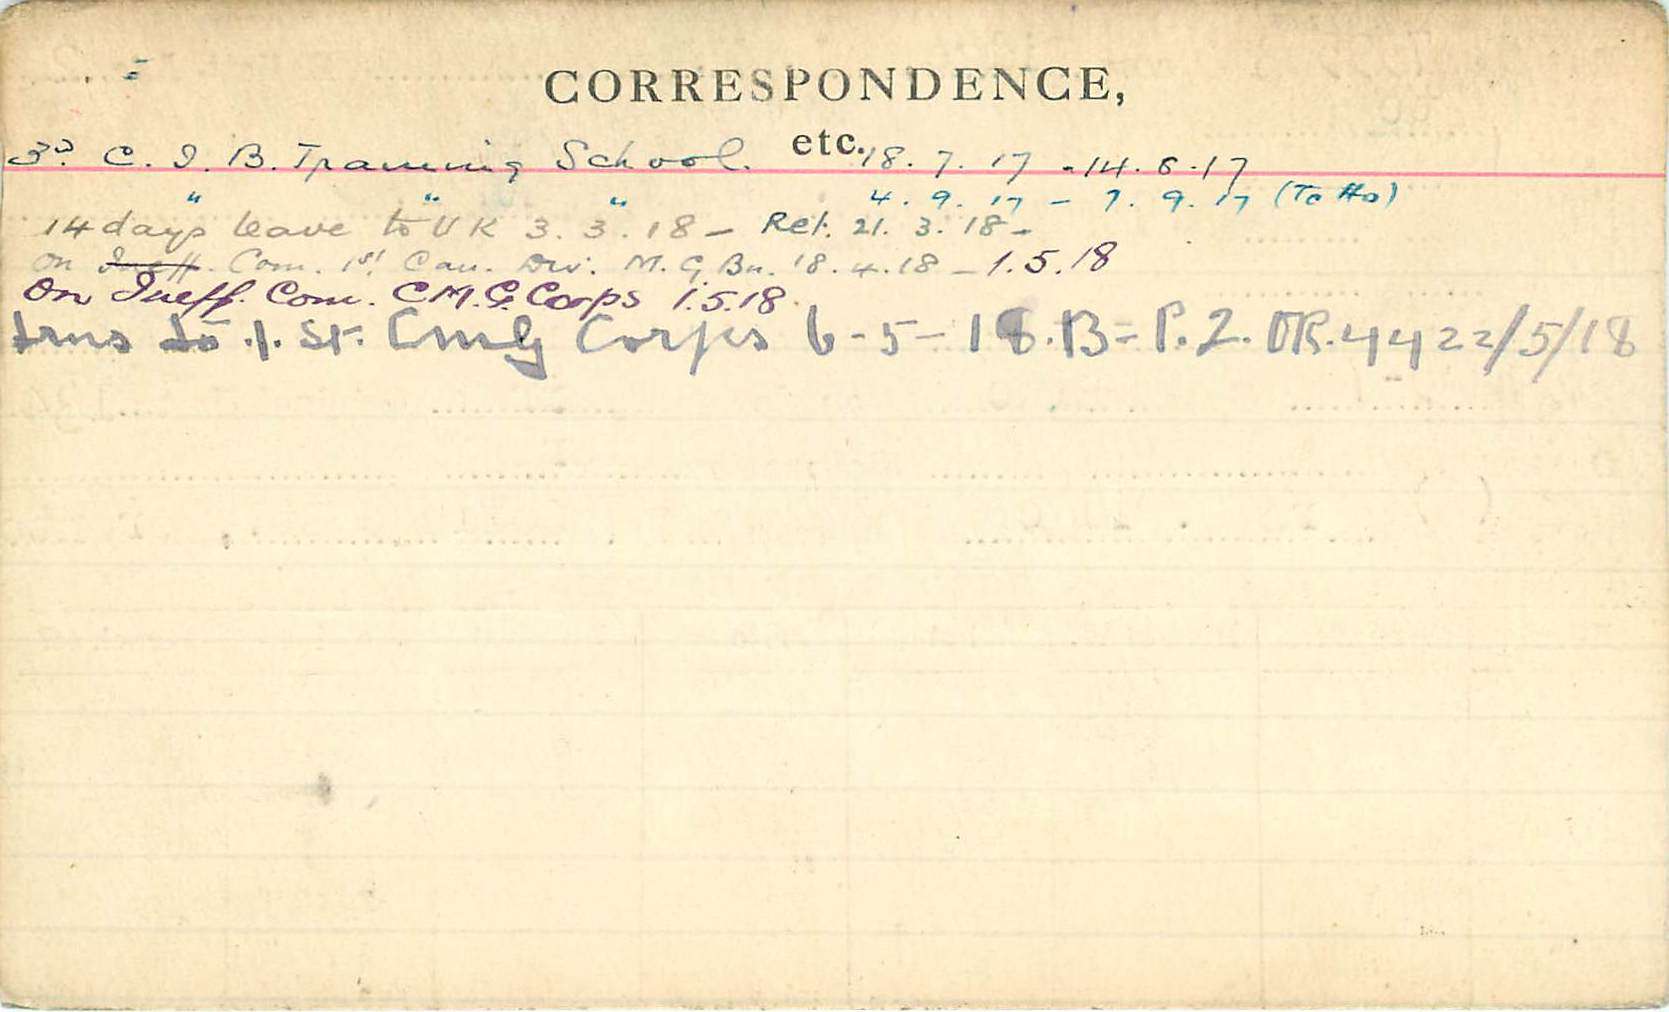 CORRESPONDENCE,
etc.
3rd. C. I. B. Training School. 18. 7. 17 - 14. 8. 17
" " " 4. 9. 17 - 7. 9. 17 (To Hs)
14 days leave to UK 3. 3. 18 - Ret. 21. 3. 18 -
On Ineff. Com. 1st Can. Div. M. G Bn. 18. 4. 18 - 1.5.18
On Ineff. Com. C.M.G. Corps 1.5.18.
trns to .1. St. CmG Corps 6-5-18. B= P. 2. OR. 44 22/5/18